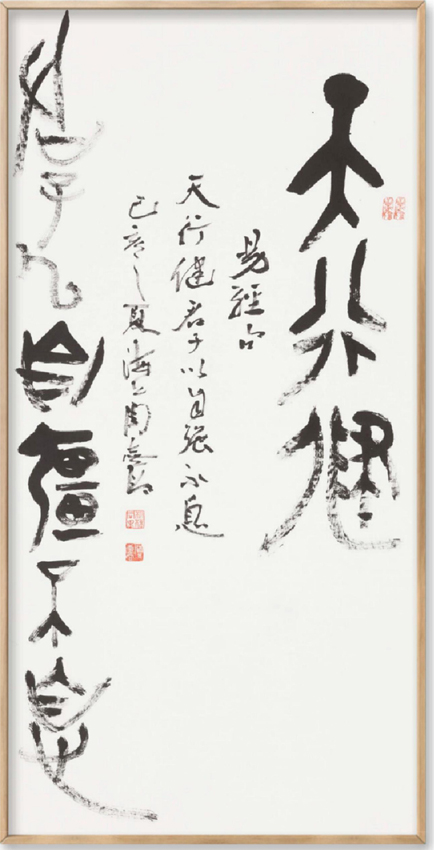 天行健
易經句
天行健君子以自强不息
己亥之夏海上周志高
君子以自彊不息